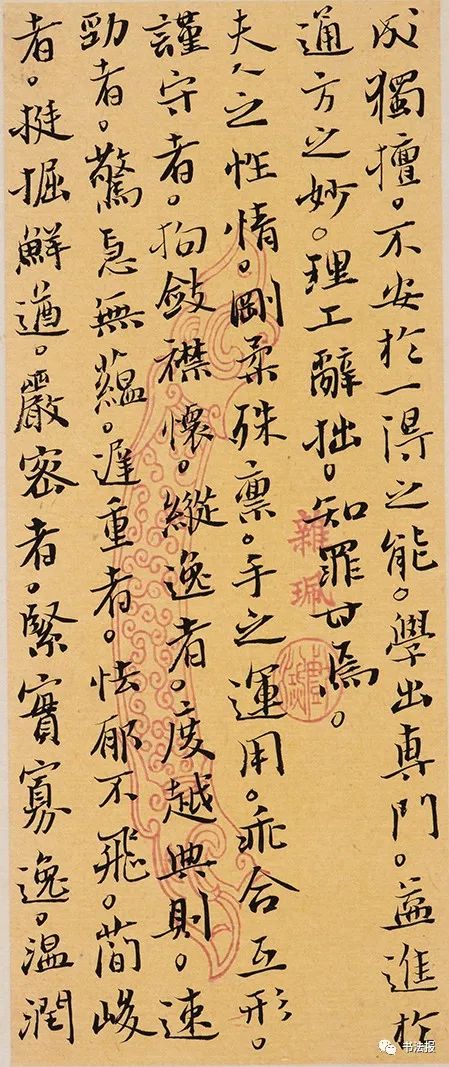 成獨擅。不安於一得之能。學出専門。益進於
通方之妙。理工辭拙。知罪甘焉。
夫人之性情。剛柔殊禀。手之運用。乖合互形。
謹守者。拘斂襟懷。縱逸者。度越典則。速
勁者。驚急無蘊。遲重者。怯郁不飛。簡峻
者。挺掘鮮遒。嚴密者。緊實寡逸。溫潤
雜珮
书法报